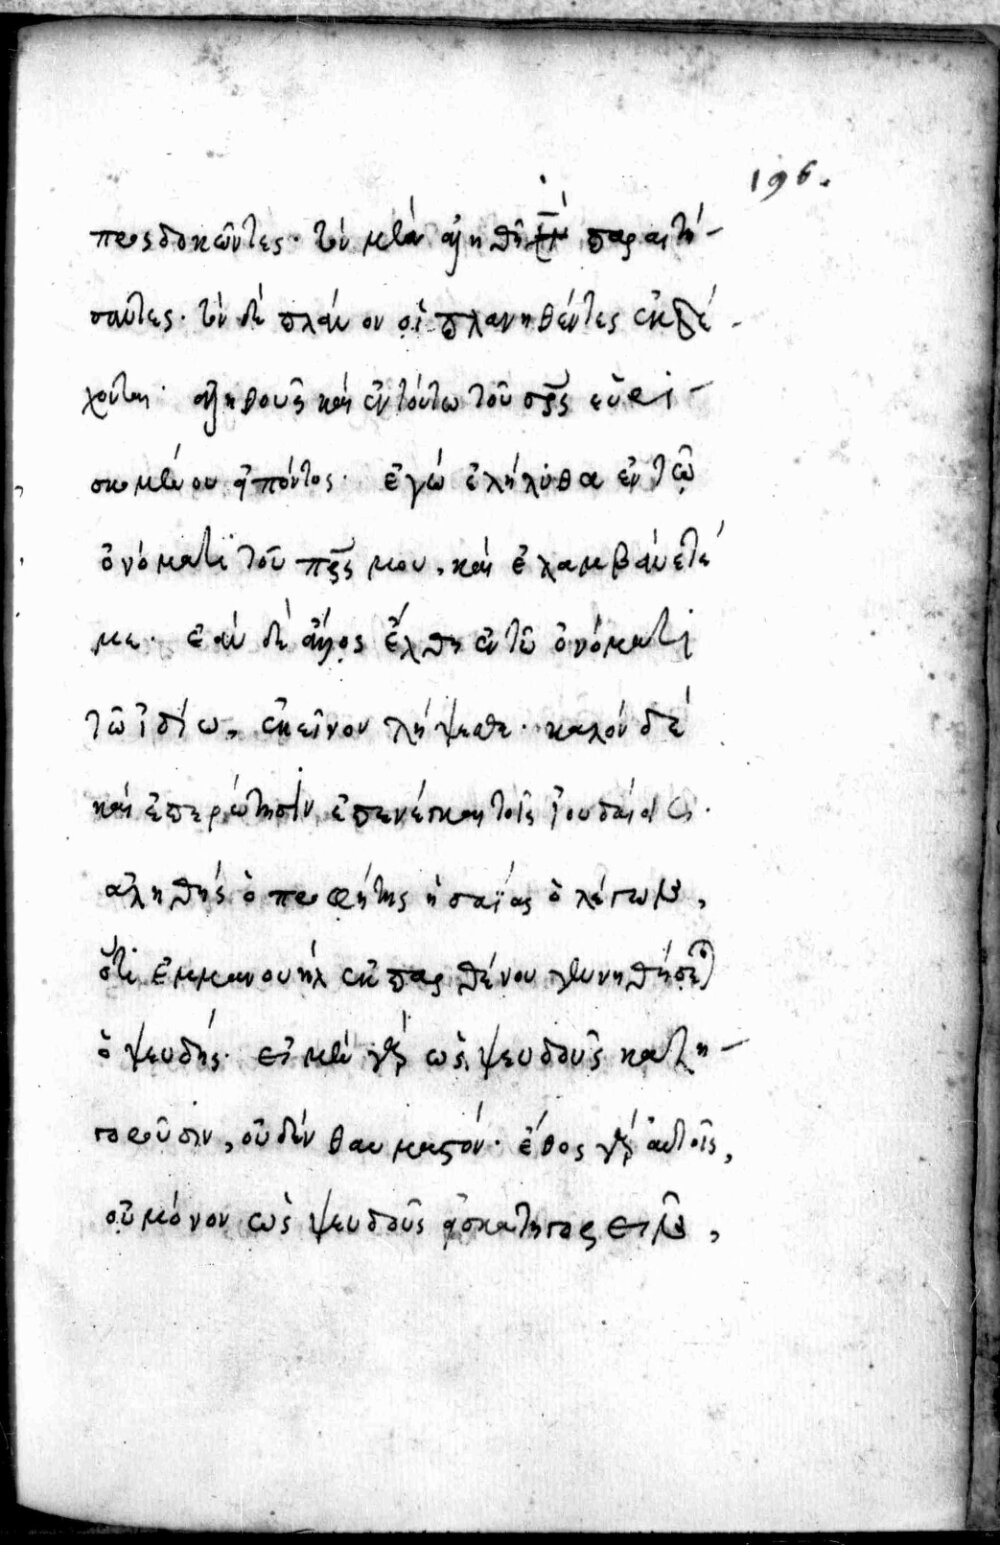 196.
προςδοκῶντες· τὸν μὲν ἀληθῆ παραιτή-
σαντες· τὸν δὲ πλάνον οἱ πλανηθέντες ἐκδέ-
χονται· ἀληθοῦς καὶ ἐν τούτω τοῦ σρς εὑρι-
σκομένου εἰπόντος· ἐγώ ἐλήλυθα ἐν τῶ
ὀνόματι τοῦ πρς μου, καὶ ἐλαμβάνετέ
με· ἐὰν δὲ ἄλλος ἔλθη ἐν τῶ ὀνόματι
τῶ ἰδίω, ἐκεῖνον λήψεσθε· καλὸν δὲ
καὶ ἐπερώτησιν ἐπενέγκαι τοῖς ἰουδαίοις·
ἀληθής ὁ προφήτης ἡσαΐας ὁ λέγων,
ὅτι ἐμμανουὴλ ἐκ παρθένου γεννηθήσεται
ὁ ψευδής· εἰ μὲν γὰρ ὡς ψευδοῦς κατη-
γοροῦσιν, οὐδὲν θαυμαστόν· ἔθος γὰρ αὐτοῖς,
οὐ μόνον ὡς ψευδοῦς